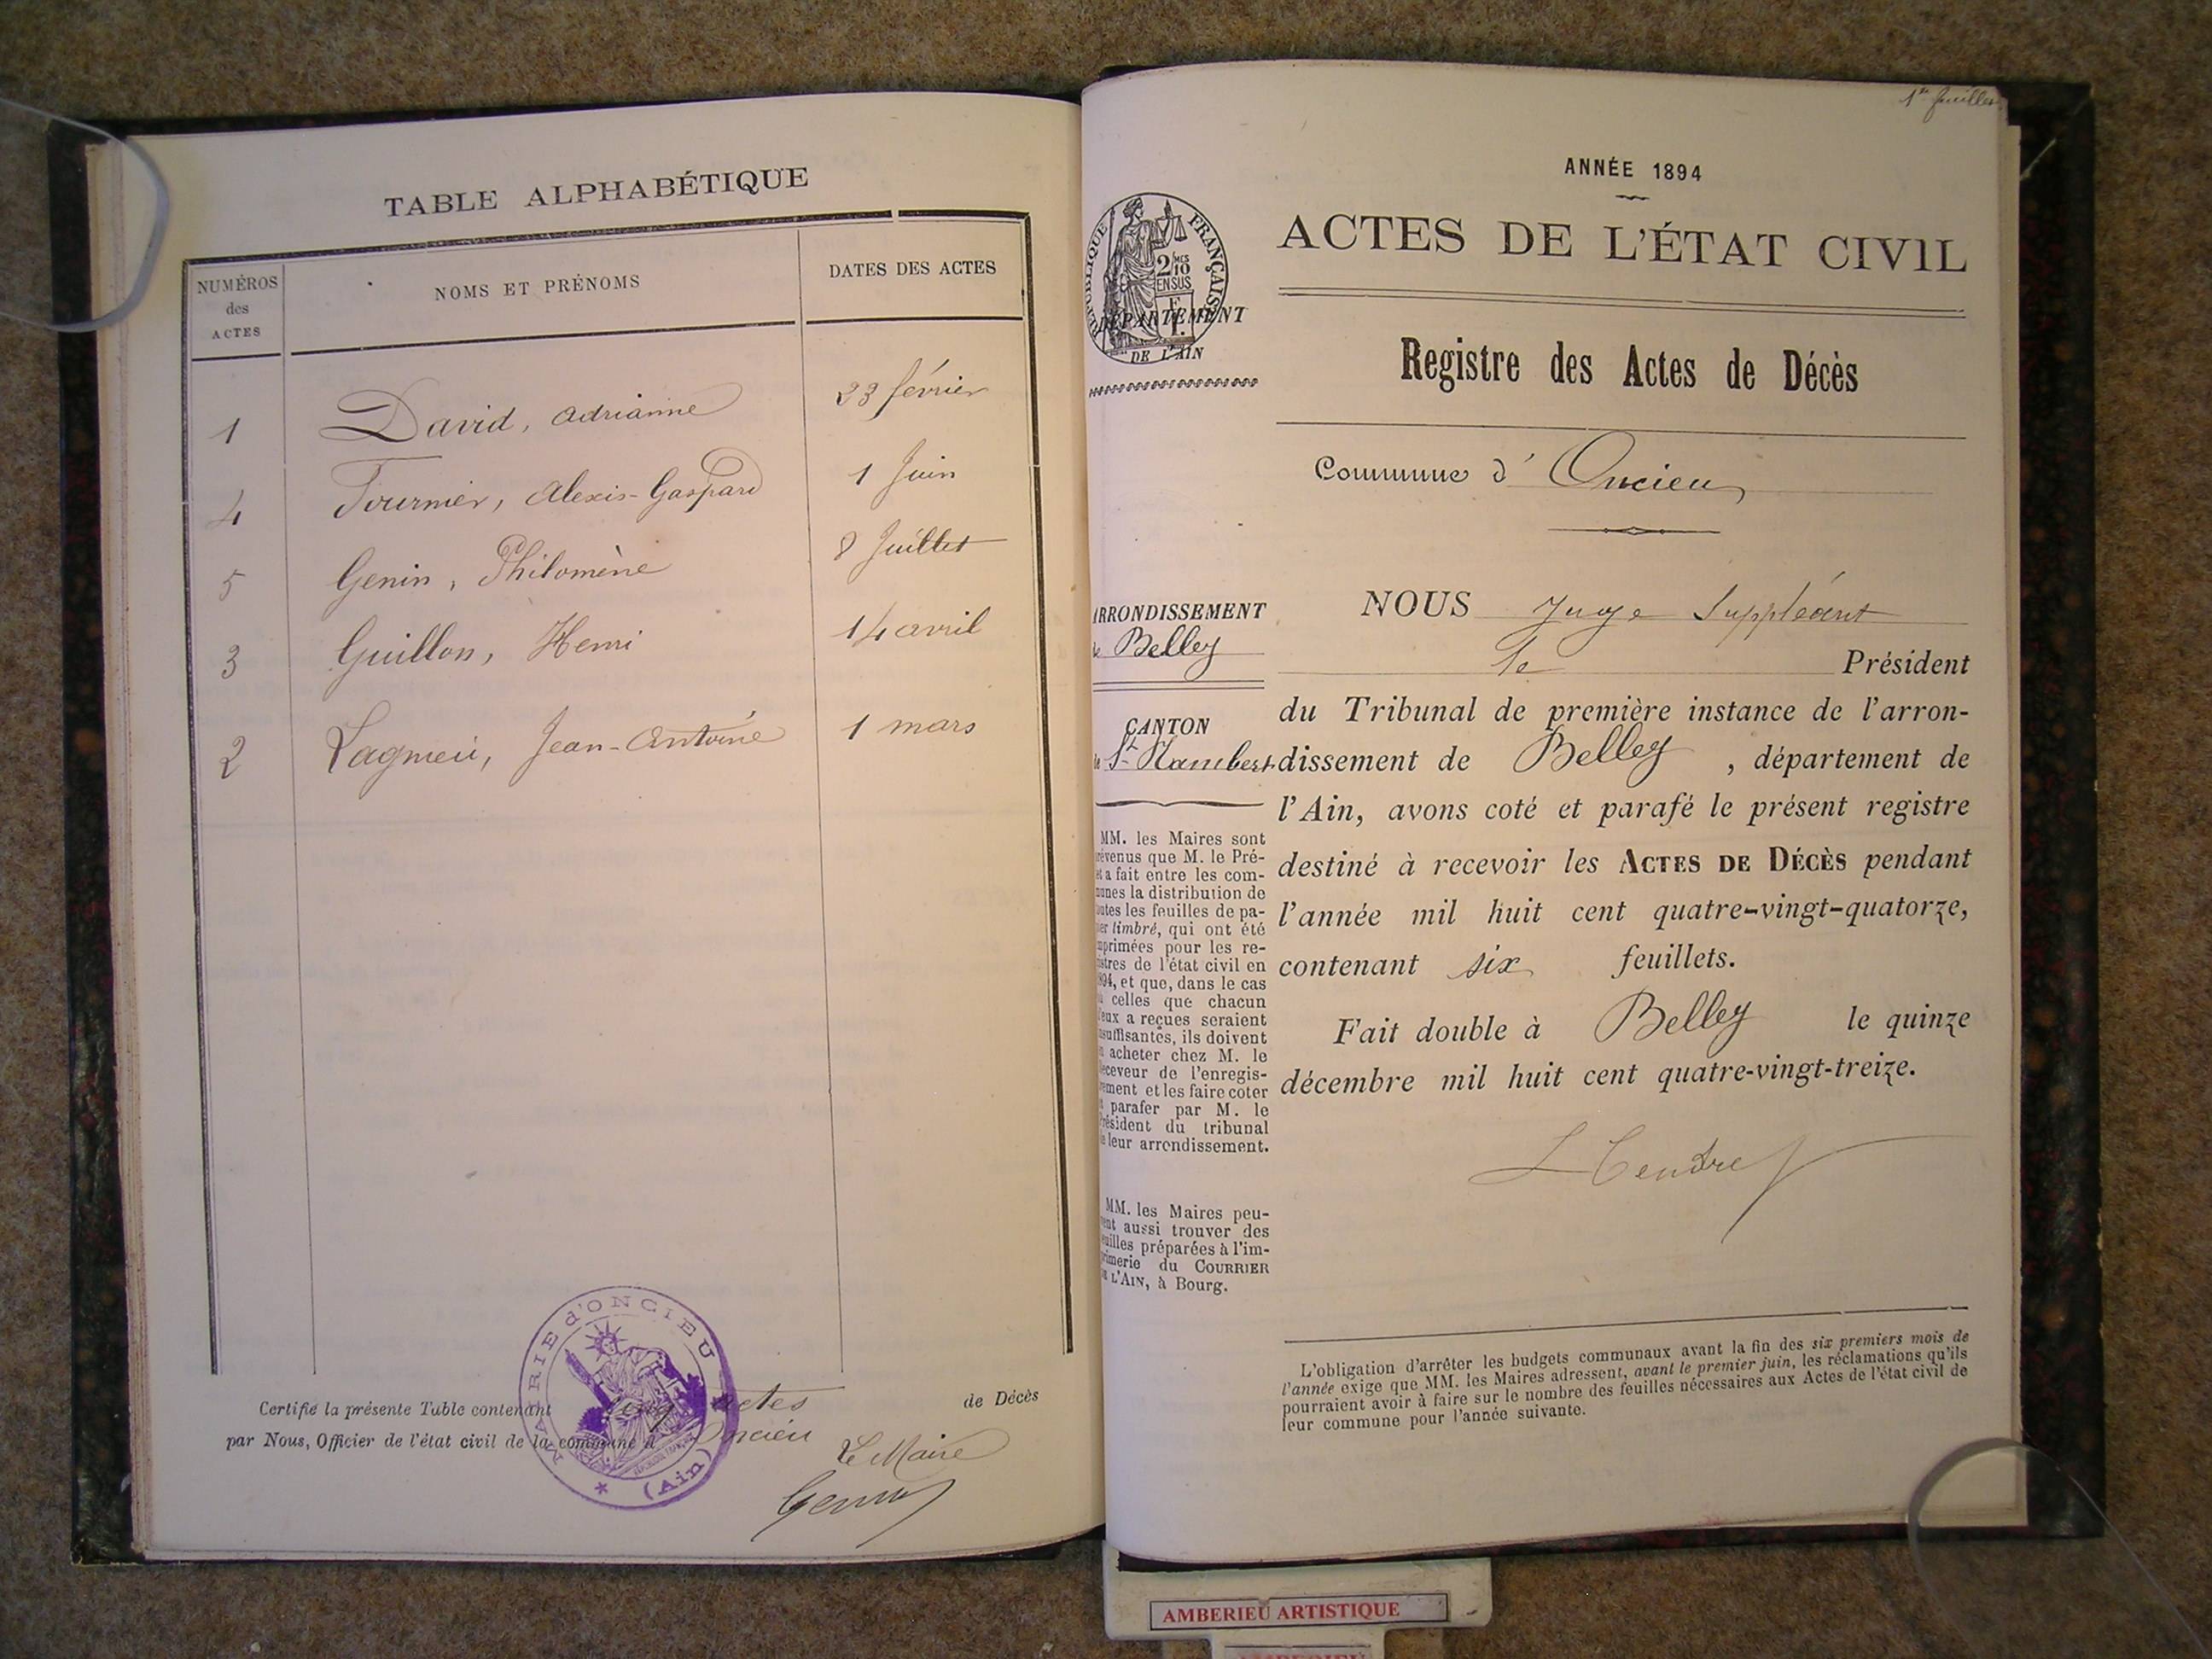 TABLE ALPHABÉTIQUE
NUMÉROS
des
ACTES
NOMS ET PRÉNOMS
DATES DES ACTES
1 David, Adrianne 23 février
4 Fournier, Alexis-Gaspard 1 Juin
5 Genin, Philomène 8 Juillet
3 Guillon, Henri 14 avril
2 Lagneu, Jean-Antoine 1 mars
Certifié la présente Table contenant cinq actes de Décès
par Nous, Officier de l'état civil de la commune d' Oncieu
Le Maire
MAIRIE d'ONCIEU
* (Ain)
1er feuillet
ANNÉE 1894
ACTES DE L'ÉTAT CIVIL
RÉPUBLIQUE FRANÇAISE
2/10 MES
EN SUS
DÉPARTEMENT
DE L'AIN
Registre des Actes de Décès
Commune d' Oncieu
ARRONDISSEMENT
de Belley
CANTON
de St Rambert
MM. les Maires sont
prévenus que M. le Pré-
fet a fait entre les com-
munes la distribution de
toutes les feuilles de pa-
pier timbré, qui ont été
imprimées pour les re-
gistres de l'état civil en
1894, et que, dans le cas
où celles que chacun
d'eux a reçues seraient
insuffisantes, ils doivent
en acheter chez M. le
receveur de l'enregis-
trement et les faire coter
et parafer par M. le
Président du tribunal
de leur arrondissement.
MM. les Maires peu-
vent aussi trouver des
feuilles préparées à l'im-
primerie du COURRIER
DE L'AIN, à Bourg.
NOUS Juge Suppléant
le Président
du Tribunal de première instance de l'arron-
dissement de Belley, département de
l'Ain, avons coté et parafé le présent registre
destiné à recevoir les ACTES DE DÉCÈS pendant
l'année mil huit cent quatre-vingt-quatorze,
contenant six feuillets.
Fait double à Belley le quinze
décembre mil huit cent quatre-vingt-treize.
L'obligation d'arrêter les budgets communaux avant la fin des six premiers mois de
l'année exige que MM. les Maires adressent, avant le premier juin, les réclamations qu'ils
pourraient avoir à faire sur le nombre des feuilles nécessaires aux Actes de l'état civil de
leur commune pour l'année suivante.
AMBERIEU ARTISTIQUE
AMBERIEU